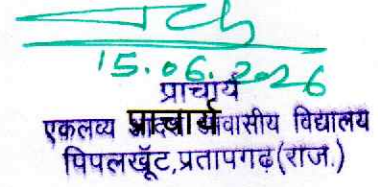 15.06.2026
प्राचार्य
प्राचार्य
एकलव्य आवासीय विद्यालय
पिपलखूँट,प्रतापगढ़(राज.)